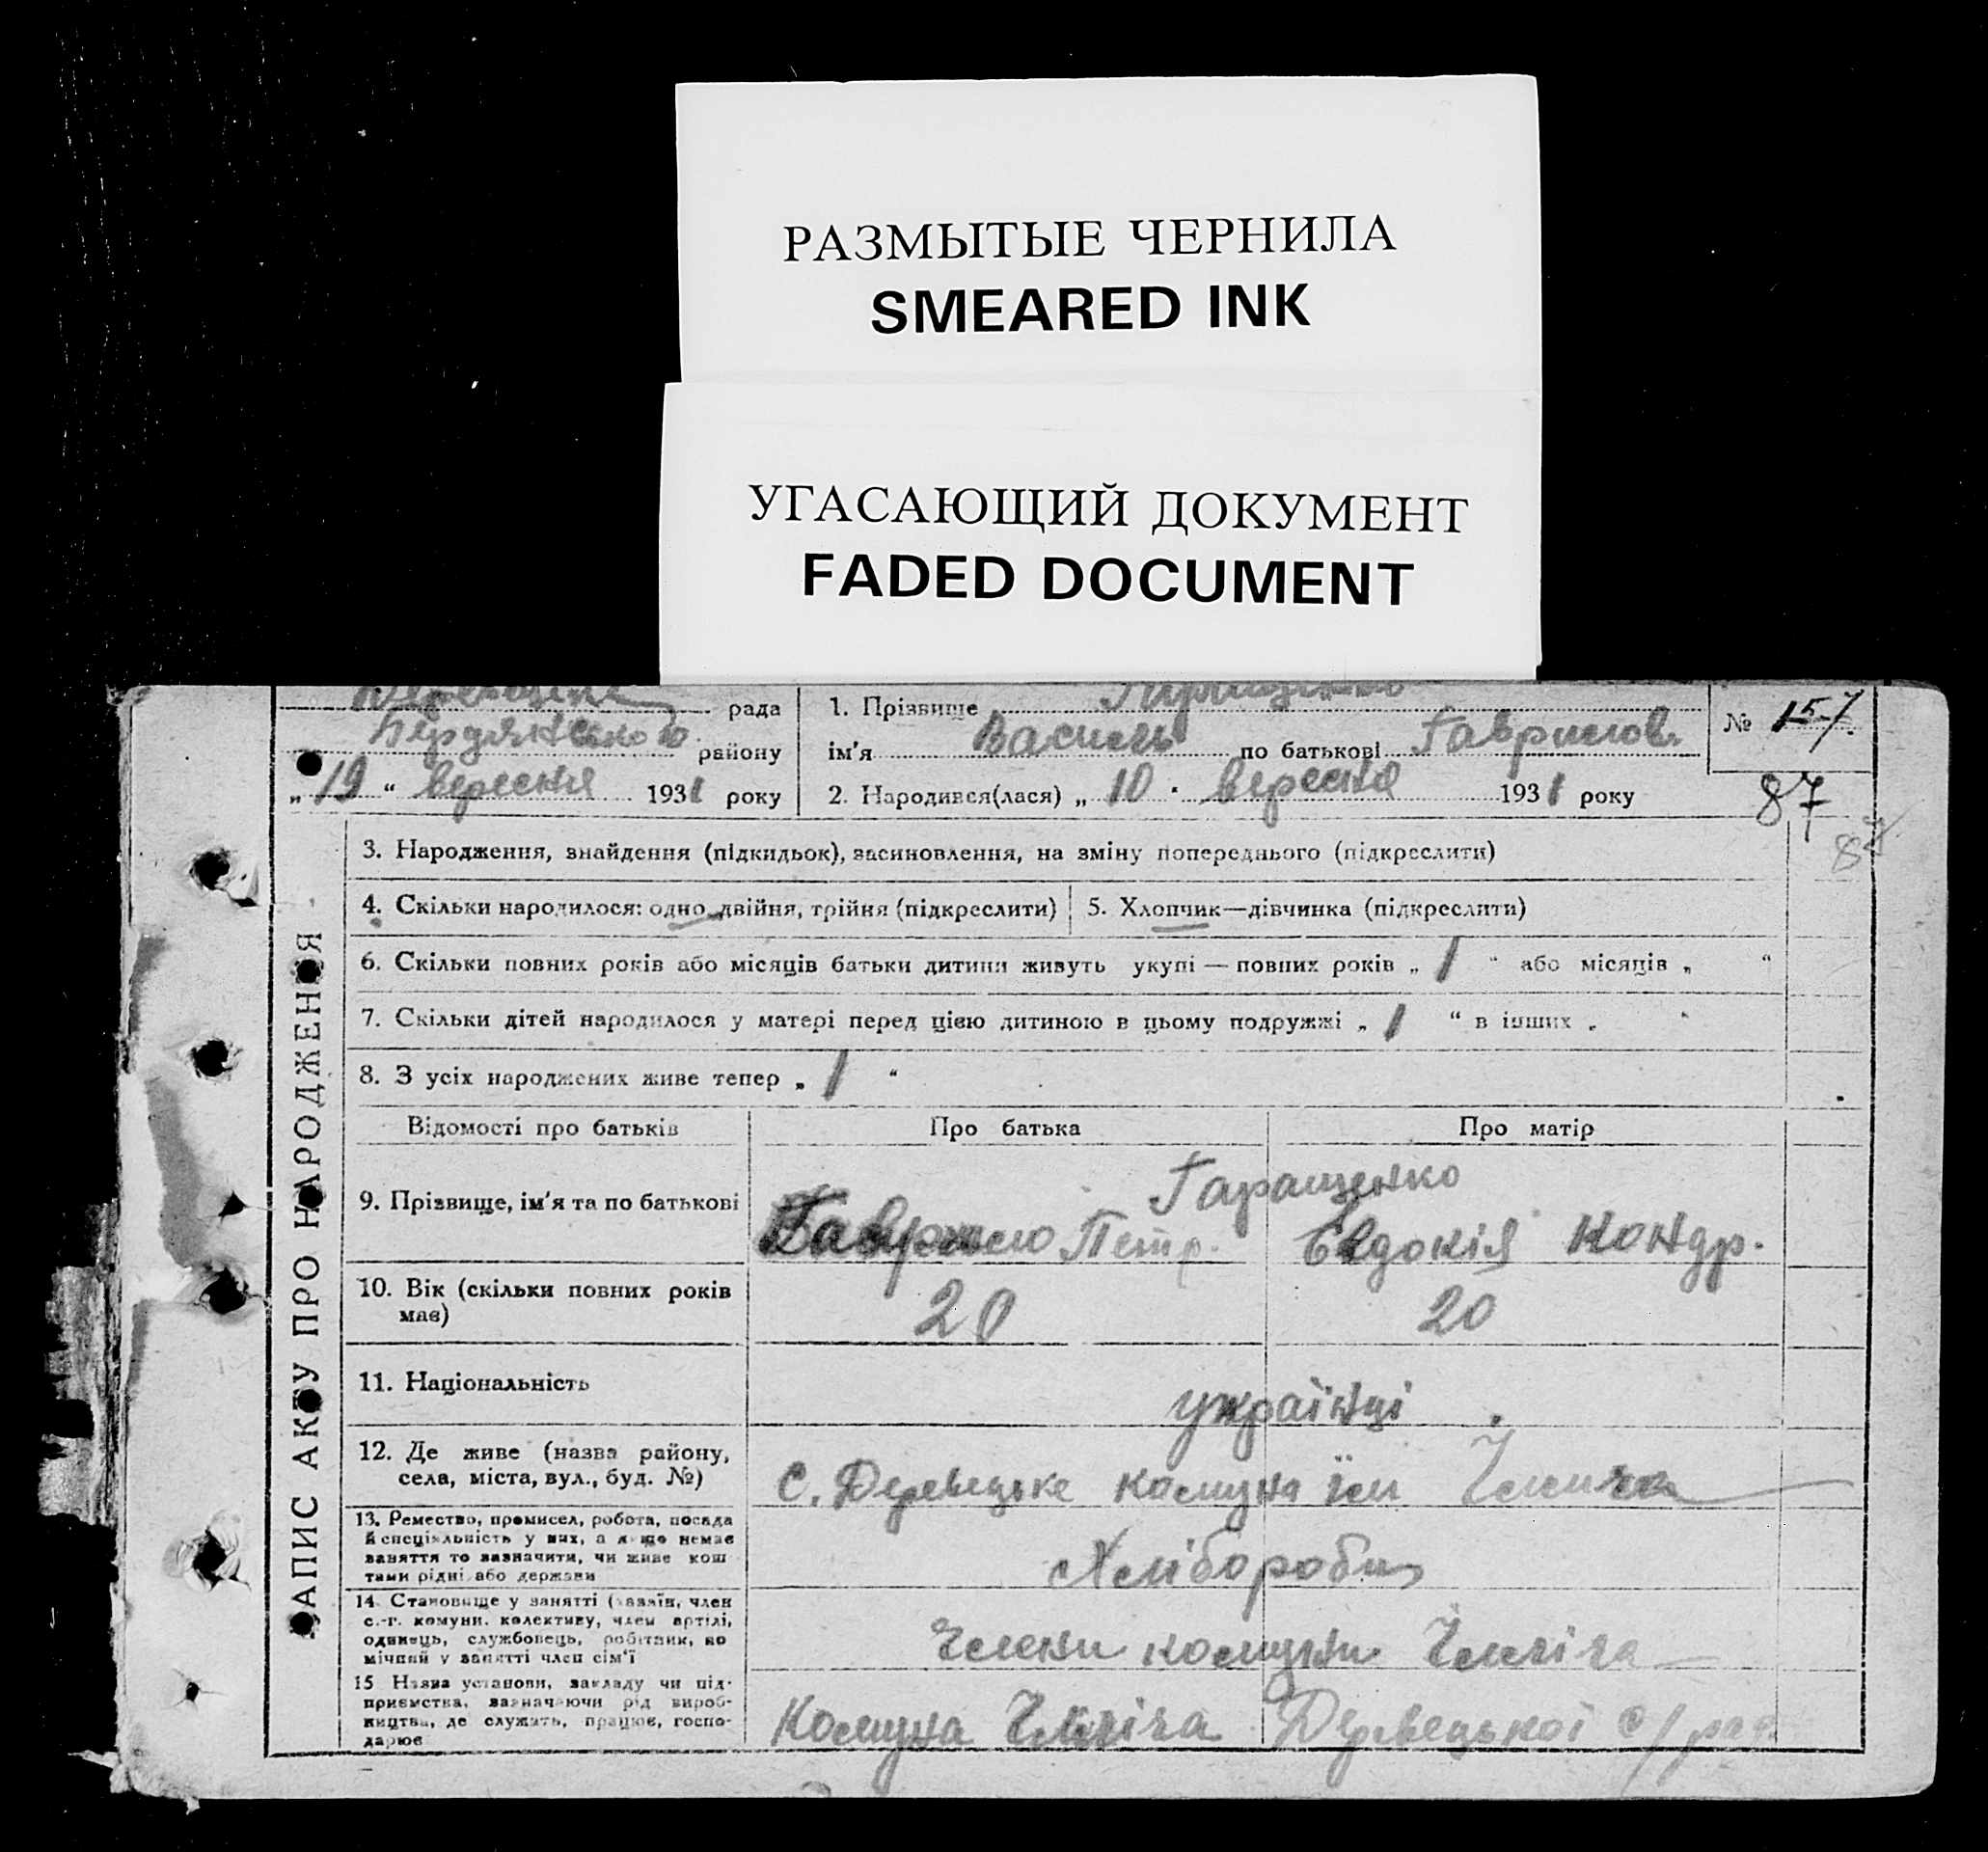 РАЗМЫТЫЕ ЧЕРНИЛА
SMEARED INK
УГАСАЮЩИЙ ДОКУМЕНТ
FADED DOCUMENT
рада
Бердянського району
„ 19 “ вересня 1931 року
1. Прізвище Гаращенко
ім'я Василь по батькові Гаврилов.
2. Народився(лася) „ 10 “ вересня 1931 року
№ 157.
87
87
ЗАПИС АКТУ ПРО НАРОДЖЕННЯ
3. Народження, знайдення (підкидьок), засиновлення, на зміну попереднього (підкреслити)
4. Скільки народилося: одно, двійня, трійня (підкреслити)
5. Хлопчик—дівчинка (підкреслити)
6. Скільки повних років або місяців батьки дитини живуть укупі — повних років „ 1 “ або місяців „ “
7. Скільки дітей народилося у матері перед цією дитиною в цьому подружжі „ 1 “ в інших „ “
8. З усіх народжених живе тепер „ 1 “
Відомості про батьків
Про батька
Про матір
9. Прізвище, ім'я та по батькові
Гаращенко
Гаврило Петр.
Евдокія Кондр.
10. Вік (скільки повних років
має)
20
20
11. Національність
українці
12. Де живе (назва району,
села, міста, вул., буд. №)
С. Деревецьке комуна ім
13. Ремество, промисел, робота, посада
й спеціяльність у них, а якщо немає
заняття то зазначити, чи живе кош
тами рідні або держави
Хлібороби
14. Становище у занятті (хазяїн, член
с.-г. комуни, колективу, член артілі,
одинець, службовець, робітник, по
мічний у занятті член сім'ї
Члени комуни
15 Назва установи, закладу чи під-
приємства, зазначаючи рід вироб-
ництва, де служить, працює, госпо-
дарює
Комуна
с/рад